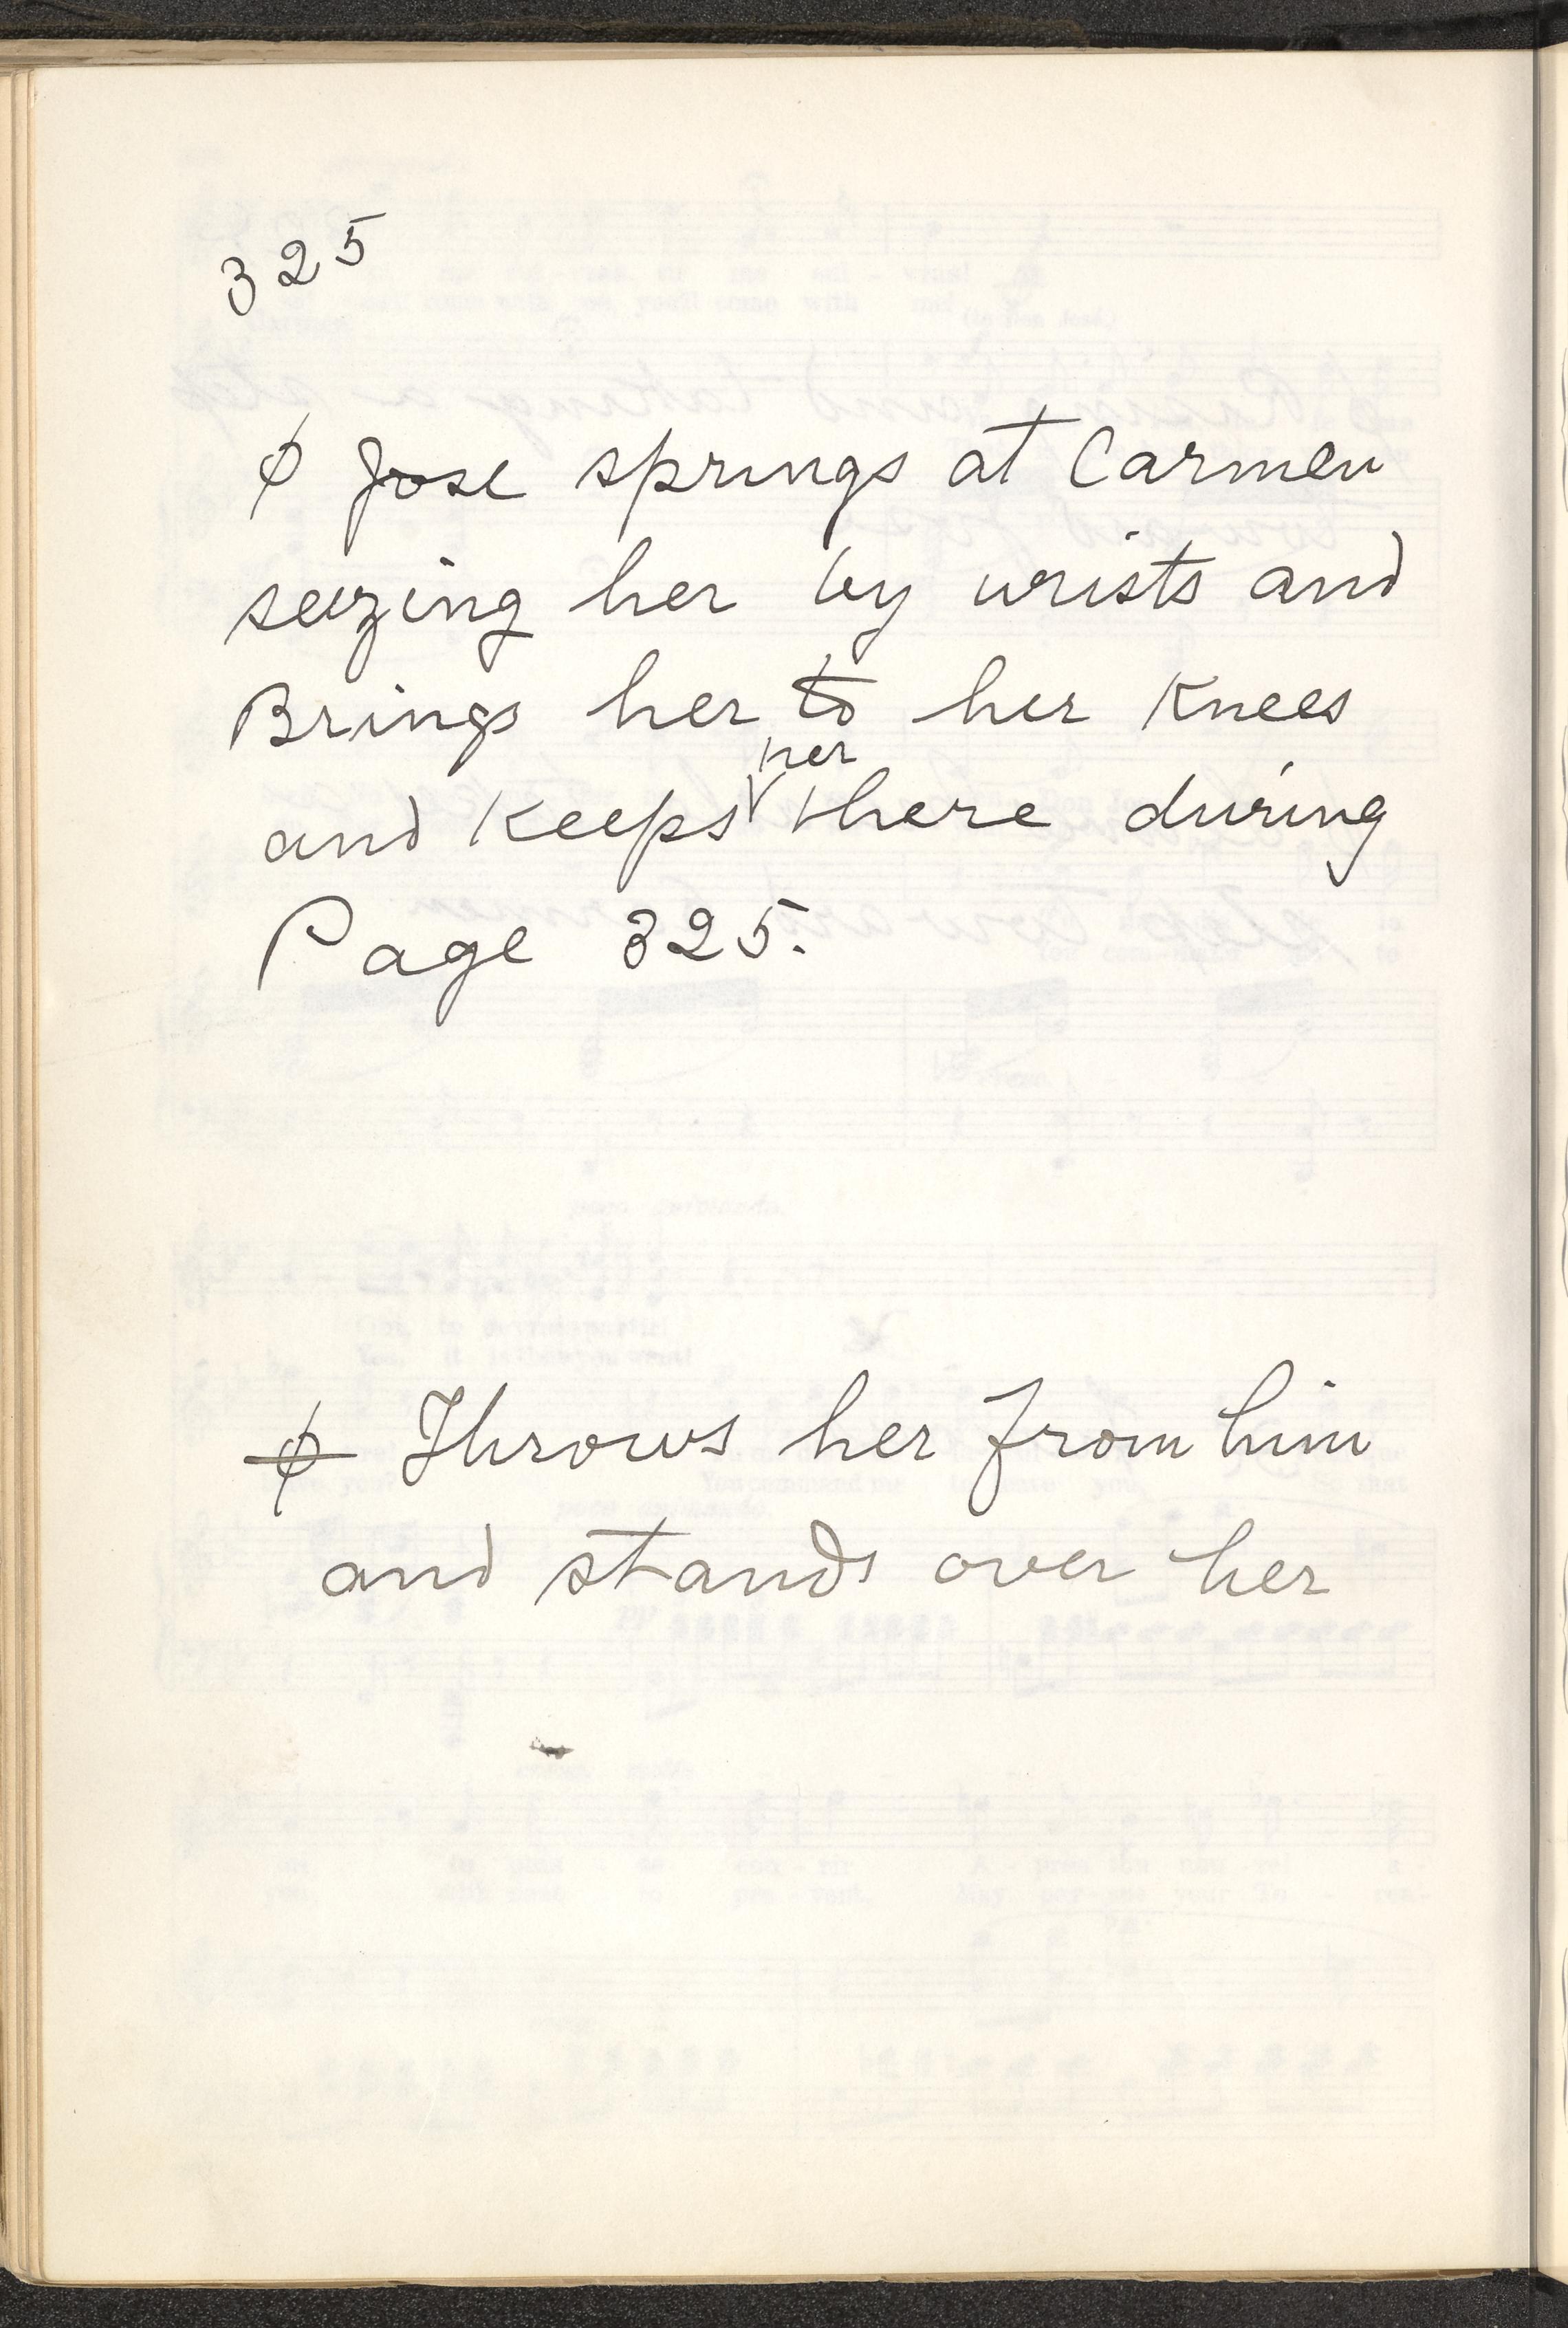 325
φ Jose springs at Carmen
seizing her by wrists and
Brings her to her Knees
her
and Keeps there during
Page 325.
φ Throws her from him
and stands over her